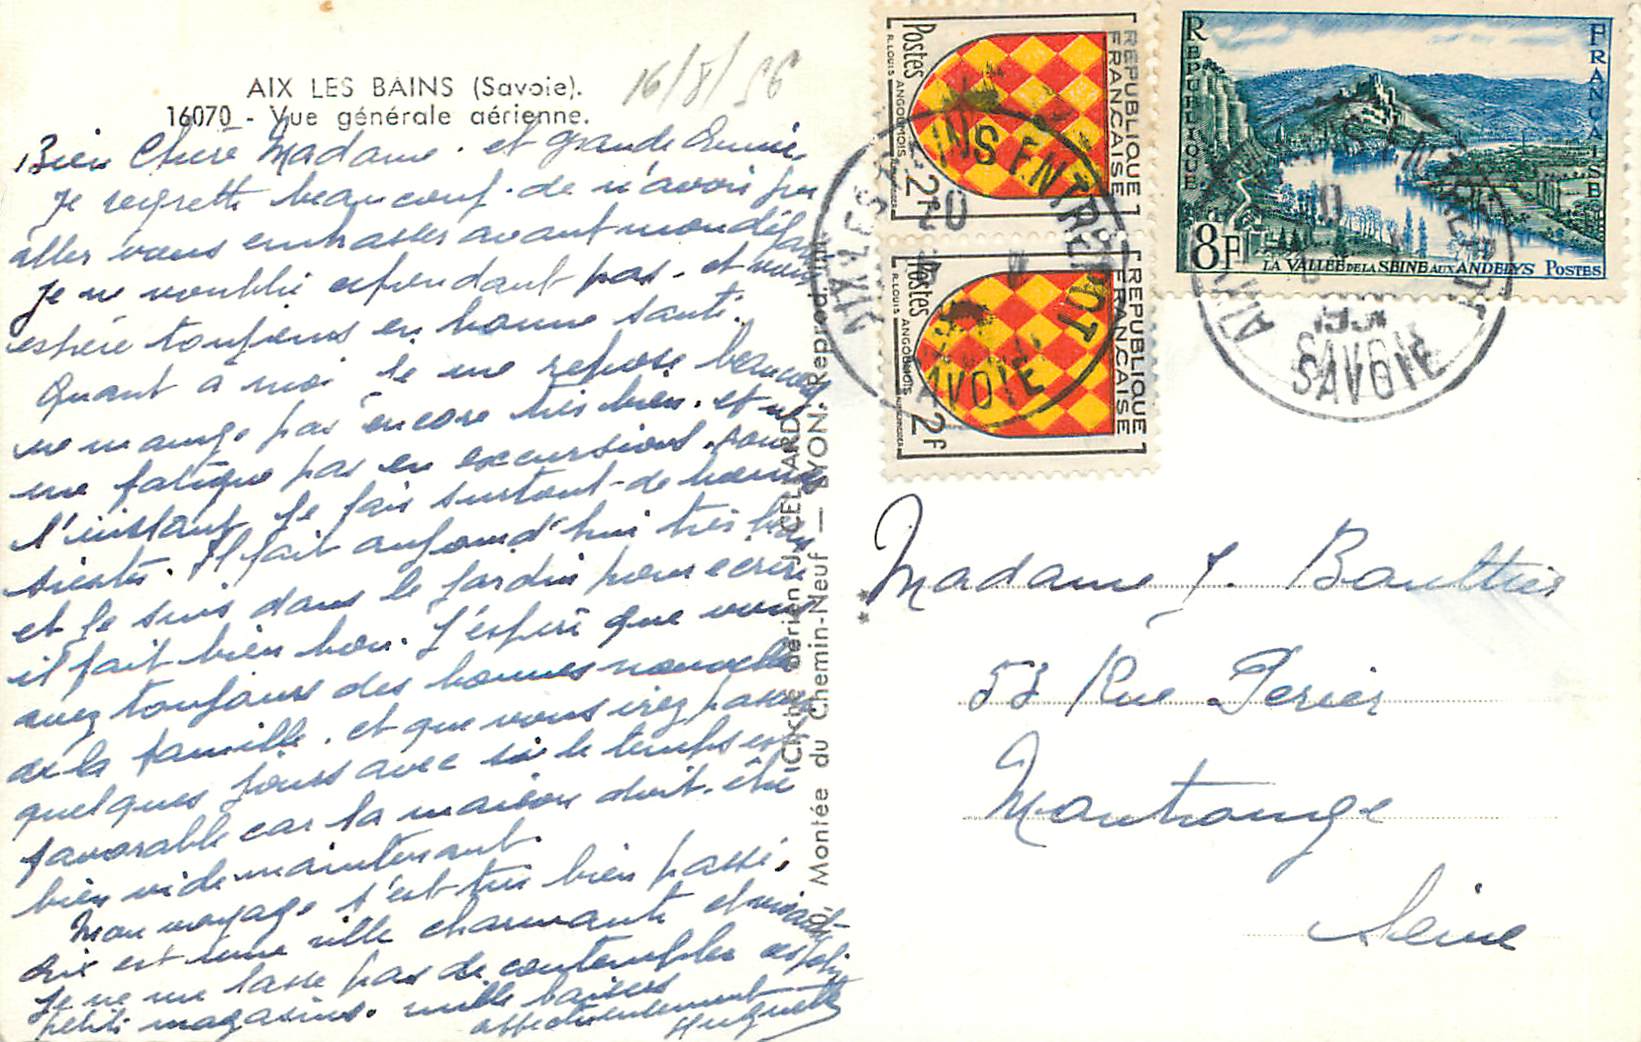 AIX LES BAINS (Savoie).
16070 - Vue générale aérienne.
16/8/56
Bien Chère Madame. et grande Amie
Je regrette beaucoup. de n'avoir pu
aller vous embrasser avant mon dépar
Je ne n'oublie cependant pas. et vous
espère toujours en bonne santé.
Quant à moi je me repose beaucoup
ne mange pas encore très bien. et ne
me fatigue pas en excursions. Pour
l'instant je fais surtout de bonnes
siestes. Il fait aujourd'hui très bon
et je suis dans le jardin pour ecrire
il fait bien bon. J'espère que vous
avez toujours des bonnes nouvelles
de la famille. et que vous irez passer
quelques jours avec si le temps est
favorable car la maison doit. être
bien vide maintenant.
Mon voyage s'est très bien passé.
Aix est une ville charmante et vivante
Je ne me lasse pas de contempler les jolis
petits magasins. mille baisers
affectueusement
Huguette
(Cliché aérien J. CELLARD)
Montée du Chemin-Neuf — LYON. Reprod. int.
REPUBLIQUE
FRANÇAISE
Postes
R. LOUIS
ANGOUMOIS
2F
REPUBLIQUE
FRANÇAISE
Postes
R. LOUIS
ANGOUMOIS
2F
REPUBLIQUE
FRANÇAISE
8F
LA VALLÉE DE LA SEINE AUX ANDELYS POSTES
AIX LES BAINS ENTREPOT
SAVOIE
AIX LES BAINS ENTREPOT
SAVOIE
Madame J. Baulthier
53 Rue Perier
Montrouge
Seine